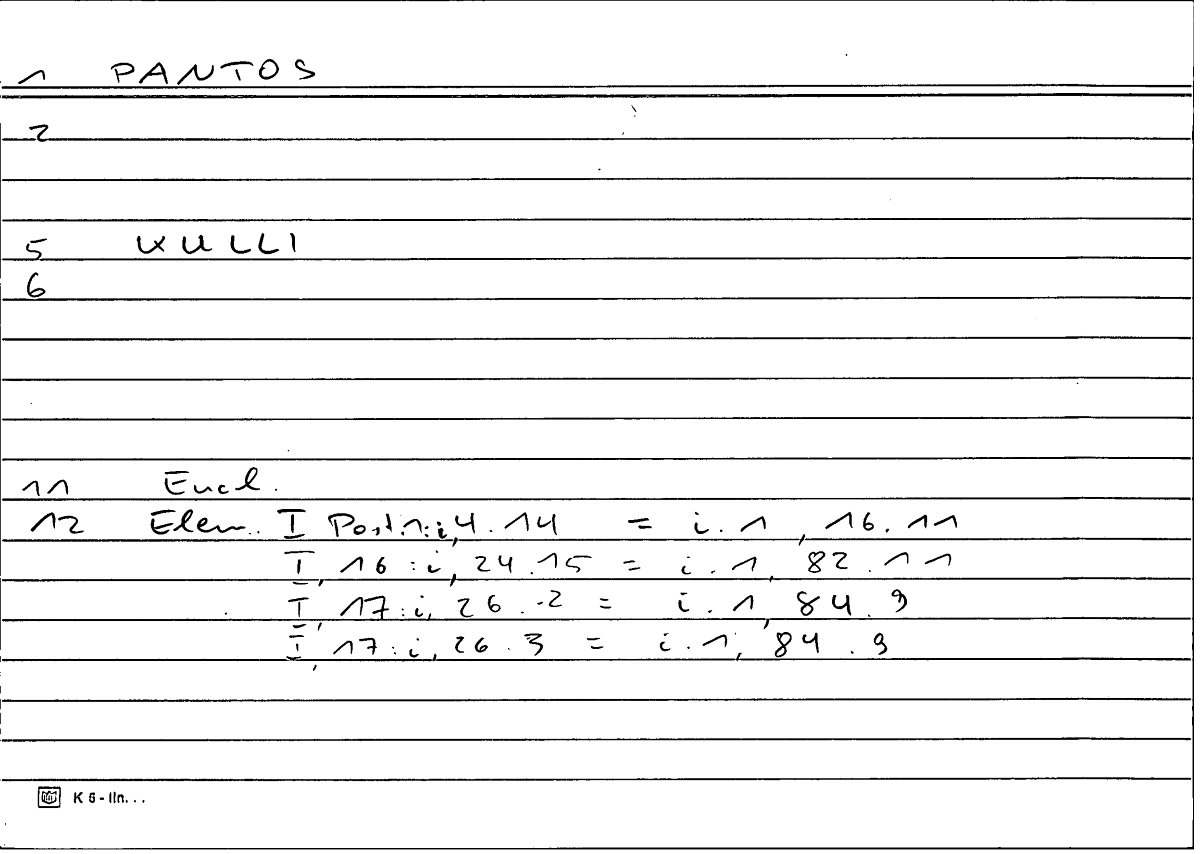 1 PANTOS
2
5 KULLI
6
11 Eucl.
12 Elem. I Post.1:i,4.14 = i.1,16.11
I,16:i,24.15 = i.1,82.11
I,17:i,26.-2 = i.1,84.9
I,17:i,26.3 = i.1,84.9
K 5 - lin...